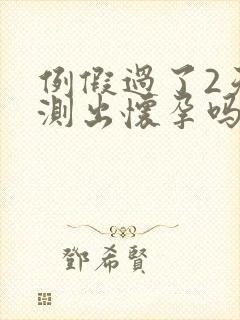 例假過了2天
測出懷孕嗎
鄧希賢